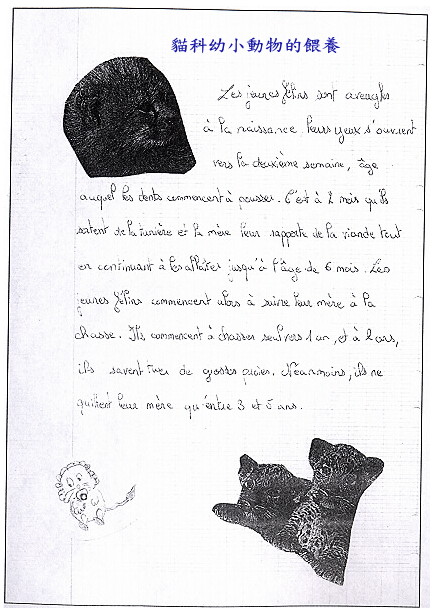 貓科幼小動物的餵養
Les jeunes félins sont aveugles
à la naissance. Leurs yeux s'ouvrent
vers la deuxième semaine, âge
auquel les dents commencent à pousser. C'est à 2 mois qu'ils
sortent de la tanière et la mère leur rapporte de la viande tout
en continuant à les allaiter jusqu'à l'âge de 6 mois. Les
jeunes félins commencent alors à suivre leur mère à la
chasse. Ils commencent à chasser seul vers 1 an, et à 2 ans,
ils savent tuer de grosses proies. Néanmoins, ils ne
quittent leur mère qu'entre 3 et 5 ans.